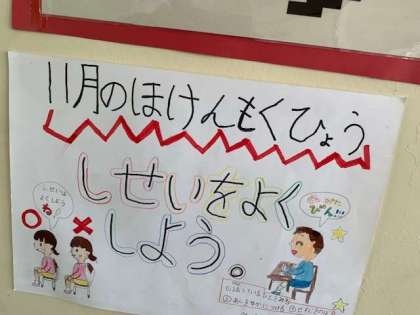 11月のほけんもくひょう
しせいをよく
しよう。
しせいよくしよう
ね！